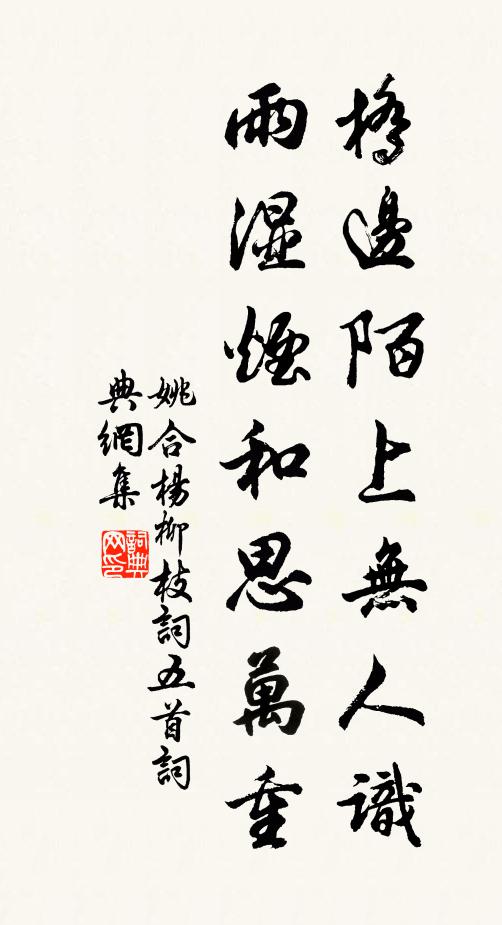 橋邊陌上無人識
雨濕煙和思萬重
姚合楊柳枝詞五首詞
典網集
詞典网印